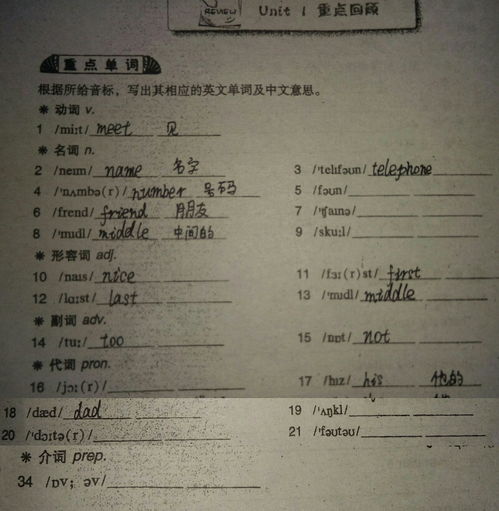 REVIEW Unit 1 重点回顾
重点单词
根据所给音标，写出其相应的英文单词及中文意思。
＊ 动词 v.
1 /miːt/ meet 见
＊ 名词 n.
2 /neɪm/ name 名字 3 /'telɪfəʊn/ telephone
4 /'nʌmbə(r)/ number 号码 5 /fəʊn/
6 /frend/ friend 朋友 7 /'tʃaɪnə/
8 /'mɪdl/ middle 中间的 9 /skuːl/
＊ 形容词 adj.
10 /naɪs/ nice 11 /fɜː(r)st/ first
12 /lɑːst/ last 13 /'mɪdl/ middle
＊ 副词 adv.
14 /tuː/ too 15 /nɒt/ not
＊ 代词 pron.
16 /jɔː(r)/ 17 /hɪz/ his 他的
18 /dæd/ dad 19 /'ʌŋkl/
20 /'dɔːtə(r)/ 21 /'fəʊtəʊ/
＊ 介词 prep.
34 /ɒv; əv/